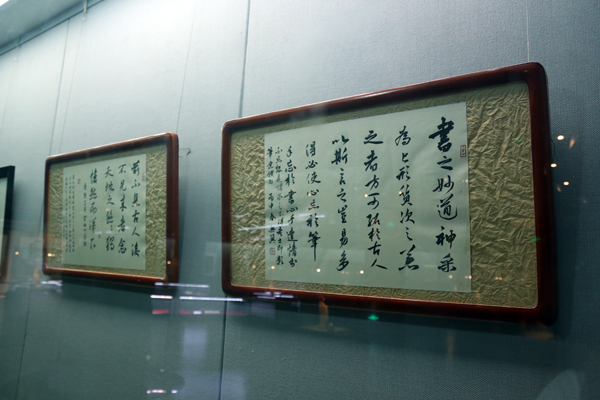 書之妙道神采
為上形質次之兼
之者方可紹於古人
以斯言之豈易多
得必使心忘於筆
手忘於書心手達情書
前不見古人後
不見來者念
天地之悠悠獨
愴然而涕下